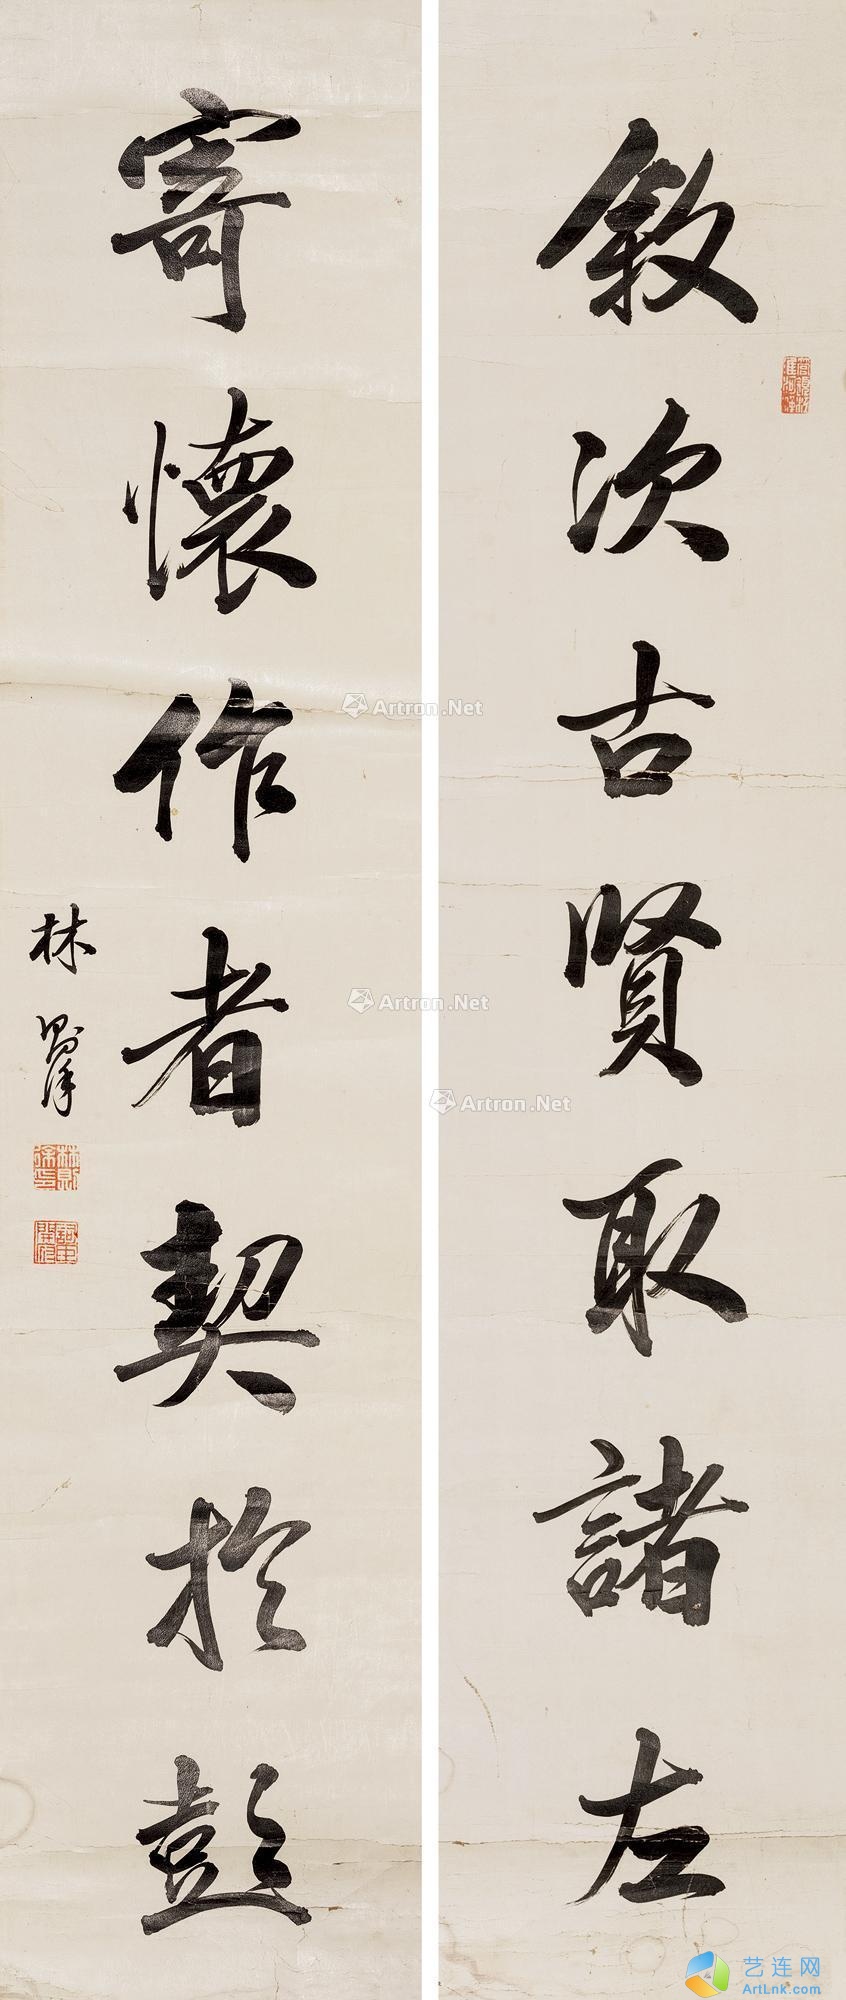 敘次古賢取諸左
寄懷作者契於彭
林則徐
林則徐印
Artron.Net
Artron.Net
Artron.Net
艺连网
ArtLnk.com